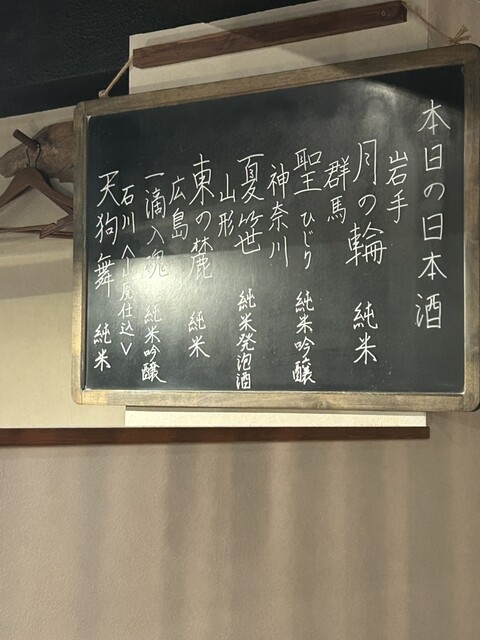 本日の日本酒
岩手
月の輪 純米
群馬
聖 ひじり 純米吟醸
神奈川
夏笹 純米発泡酒
山形
東の麓 純米
広島
一滴入魂 純米吟醸
石川 〈山廃仕込〉
天狗舞 純米